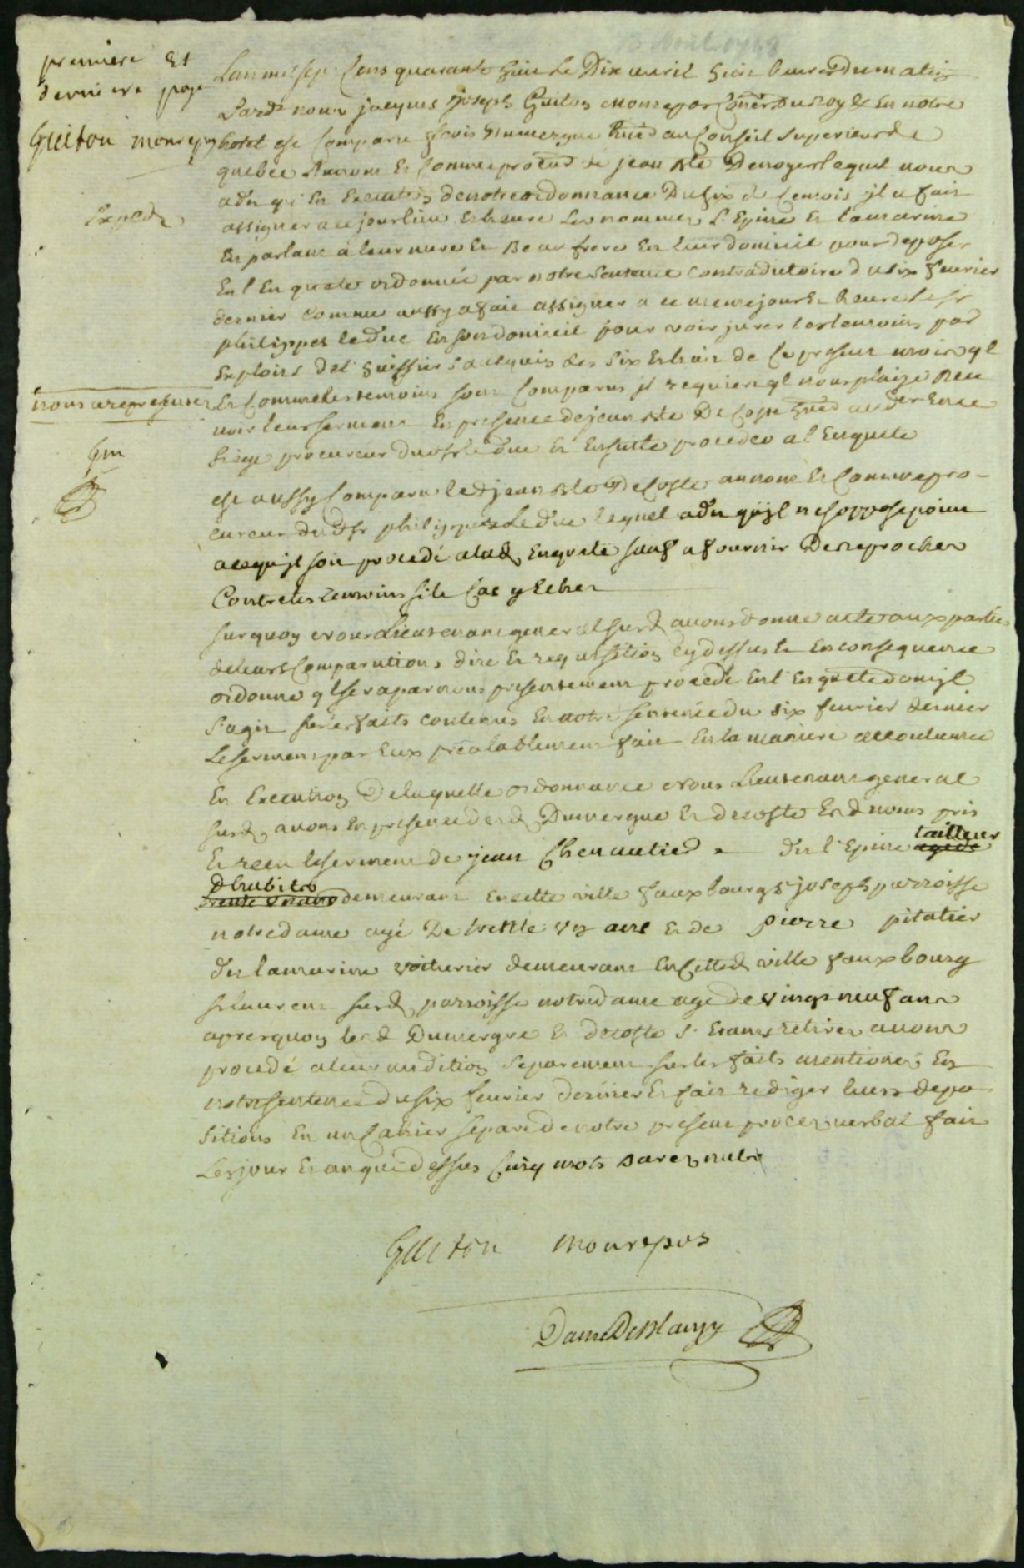 premiere Et
derniere page
Guiton monrepos
Expedié
nous a representé
Gm
Lan mil sept Cens quarante huit Le Dix avril huit heures du matin
Pardt nous jacques joseph Guiton monrepos Coner du Roy &c En notre
hotel est Comparu Louis Dumergue huer au Conseil Superieur de
quebec Au nom Et Comme procur de jean Bte Denoyer lequel nous
a dit qu'En Execution de notre ordonnance Du six de Cemois jl a fait
assigner a ce jour lieu Et heure Les nommes L'Epine Et lamarine
En parlant à leur mere Et Beau frere En leur domicil pour deposer
En l'Enquete ordonnée par notre Sentence Contradictoire du six fevrier
dernier Comme aussy a fait assigner a ce meme jour Et heure Le Sr
philippes leduc En son domicil pour voir jurer les temoins par
Exploits del' huissier des six Et huit de Ce present mois ql
Et Comme les temoins sont Comparus jl requiert ql nous plaise Rece
voir leur serment En presence de jean Bte DeCoste huer au
Siege procureur dud Sr leduc Et Ensuitte proceder a l'Enquete
est aussy Comparu led jean Bte DeCoste au nom Et Comme pro-
cureur du d Sr philippes Le duc lequel a dit qu'jl ne s'oppose point
a ce qu'jl soit procedé a lad Enquete sauf a fournir De reproches
Contre les temoins si le Cas y Echet
surquoy nous Lieutenant general susd avons donné acte aux parties
de leurs Comparutions dire Et requisition cy dessus Et En consequence
ordonné ql sera par nous presentement procedé En l'Enquete dont jl
s'agit sur les faits contenus En notre sentence du six fevrier dernier
Le serment par Eux prealablement fait En la maniere accoutumée
En Execution De laquelle ordonnance nous Lieutenant general
susd avons En presence desd Dumergue Et decoste Esd noms pris
Et receu le serment de jean Chevautier dit l'Epine tailleur
D'habits demeurant En cette ville fauxbourg St joseph parroisse
notredame agé De trente un ans Et de pierre pitalier
dit lamarine voiturier demeurant En Cetted ville fauxbourg
St laurent susd parroisse notredame age de vingt neuf ans
apres quoy les d Dumergue Et decoste s'Etants retires avons
procedé a leur audition separement sur les faits mentionés En
notre sentence du six fevrier dernier Et fait rediger leurs depo
sitions En un Cahier separé de notre present procez verbal fait
Les jour Et an que dessus Cinq mots Rayez nuls
Guiton Monrepos
DanreDeBlanzy